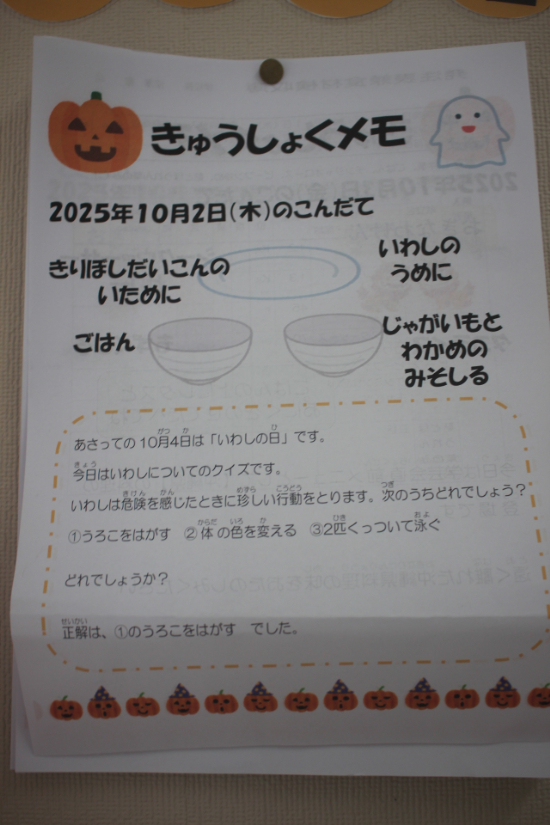 きゅうしょくメモ
2025年10月2日(木)のこんだて
きりぼしだいこんの
いために
いわしの
うめに
ごはん
じゃがいもと
わかめの
みそしる
あさっての10月4日は「いわしの日」です。
今日はいわしについてのクイズです。
いわしは危険を感じたときに珍しい行動をとります。次のうちどれでしょう?
①うろこをはがす ②体の色を変える ③2匹くっついて泳ぐ
どれでしょうか?
正解は、①のうろこをはがす でした。